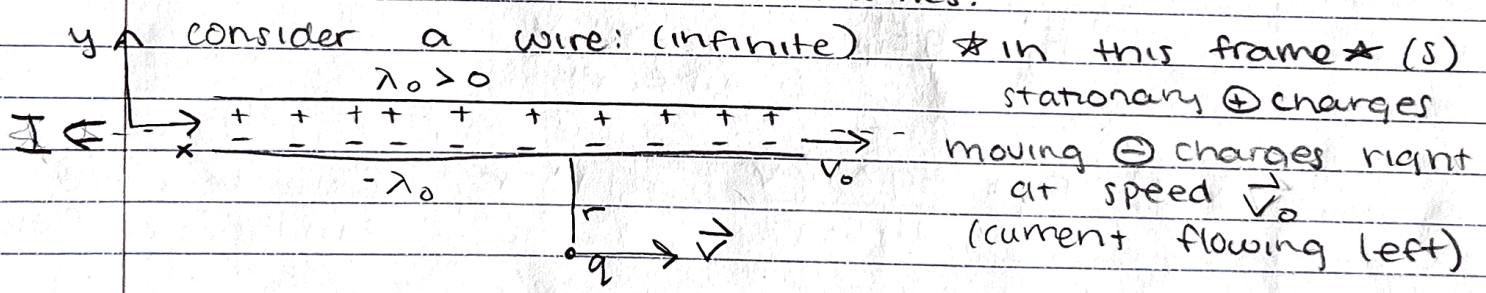 y consider a wire: (infinite) ☆ in this frame ☆ (S)
λ₀ > 0 stationary ⊕ charges
I ← + + + + + + + + + +
x - - - - - - - - - - v₀ moving ⊖ charges right
-λ₀ at speed v⃗₀
r v⃗ (current flowing left)
q